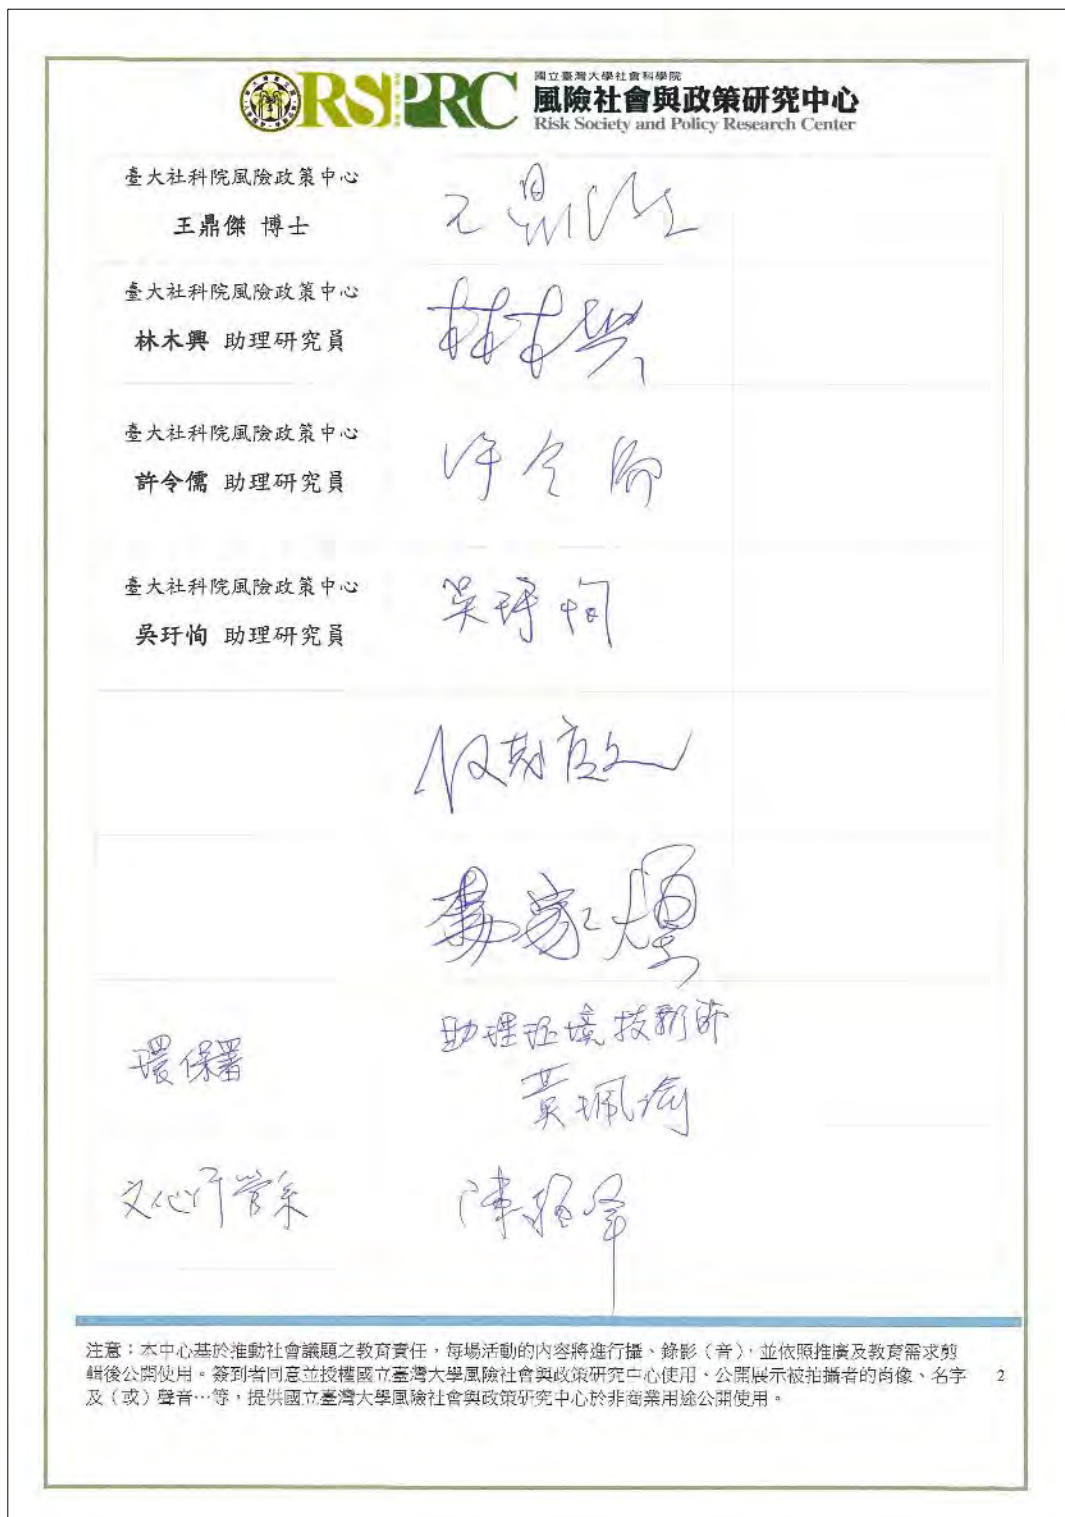 RSPRC
國立臺灣大學社會科學院
風險社會與政策研究中心
Risk Society and Policy Research Center
臺大社科院風險政策中心
王鼎傑 博士
王鼎傑
臺大社科院風險政策中心
林木興 助理研究員
林木興
臺大社科院風險政策中心
許令儒 助理研究員
許令儒
臺大社科院風險政策中心
吳玗恂 助理研究員
吳玗恂
環保署
助理环境技術師
黃珮瑜
文化行管系
陳
注意：本中心基於推動社會議題之教育責任，每場活動的內容將進行攝、錄影（音），並依照推廣及教育需求剪
輯後公開使用。簽到者同意並授權國立臺灣大學風險社會與政策研究中心使用、公開展示被拍攝者的肖像、名字
及（或）聲音…等，提供國立臺灣大學風險社會與政策研究中心於非商業用途公開使用。
2